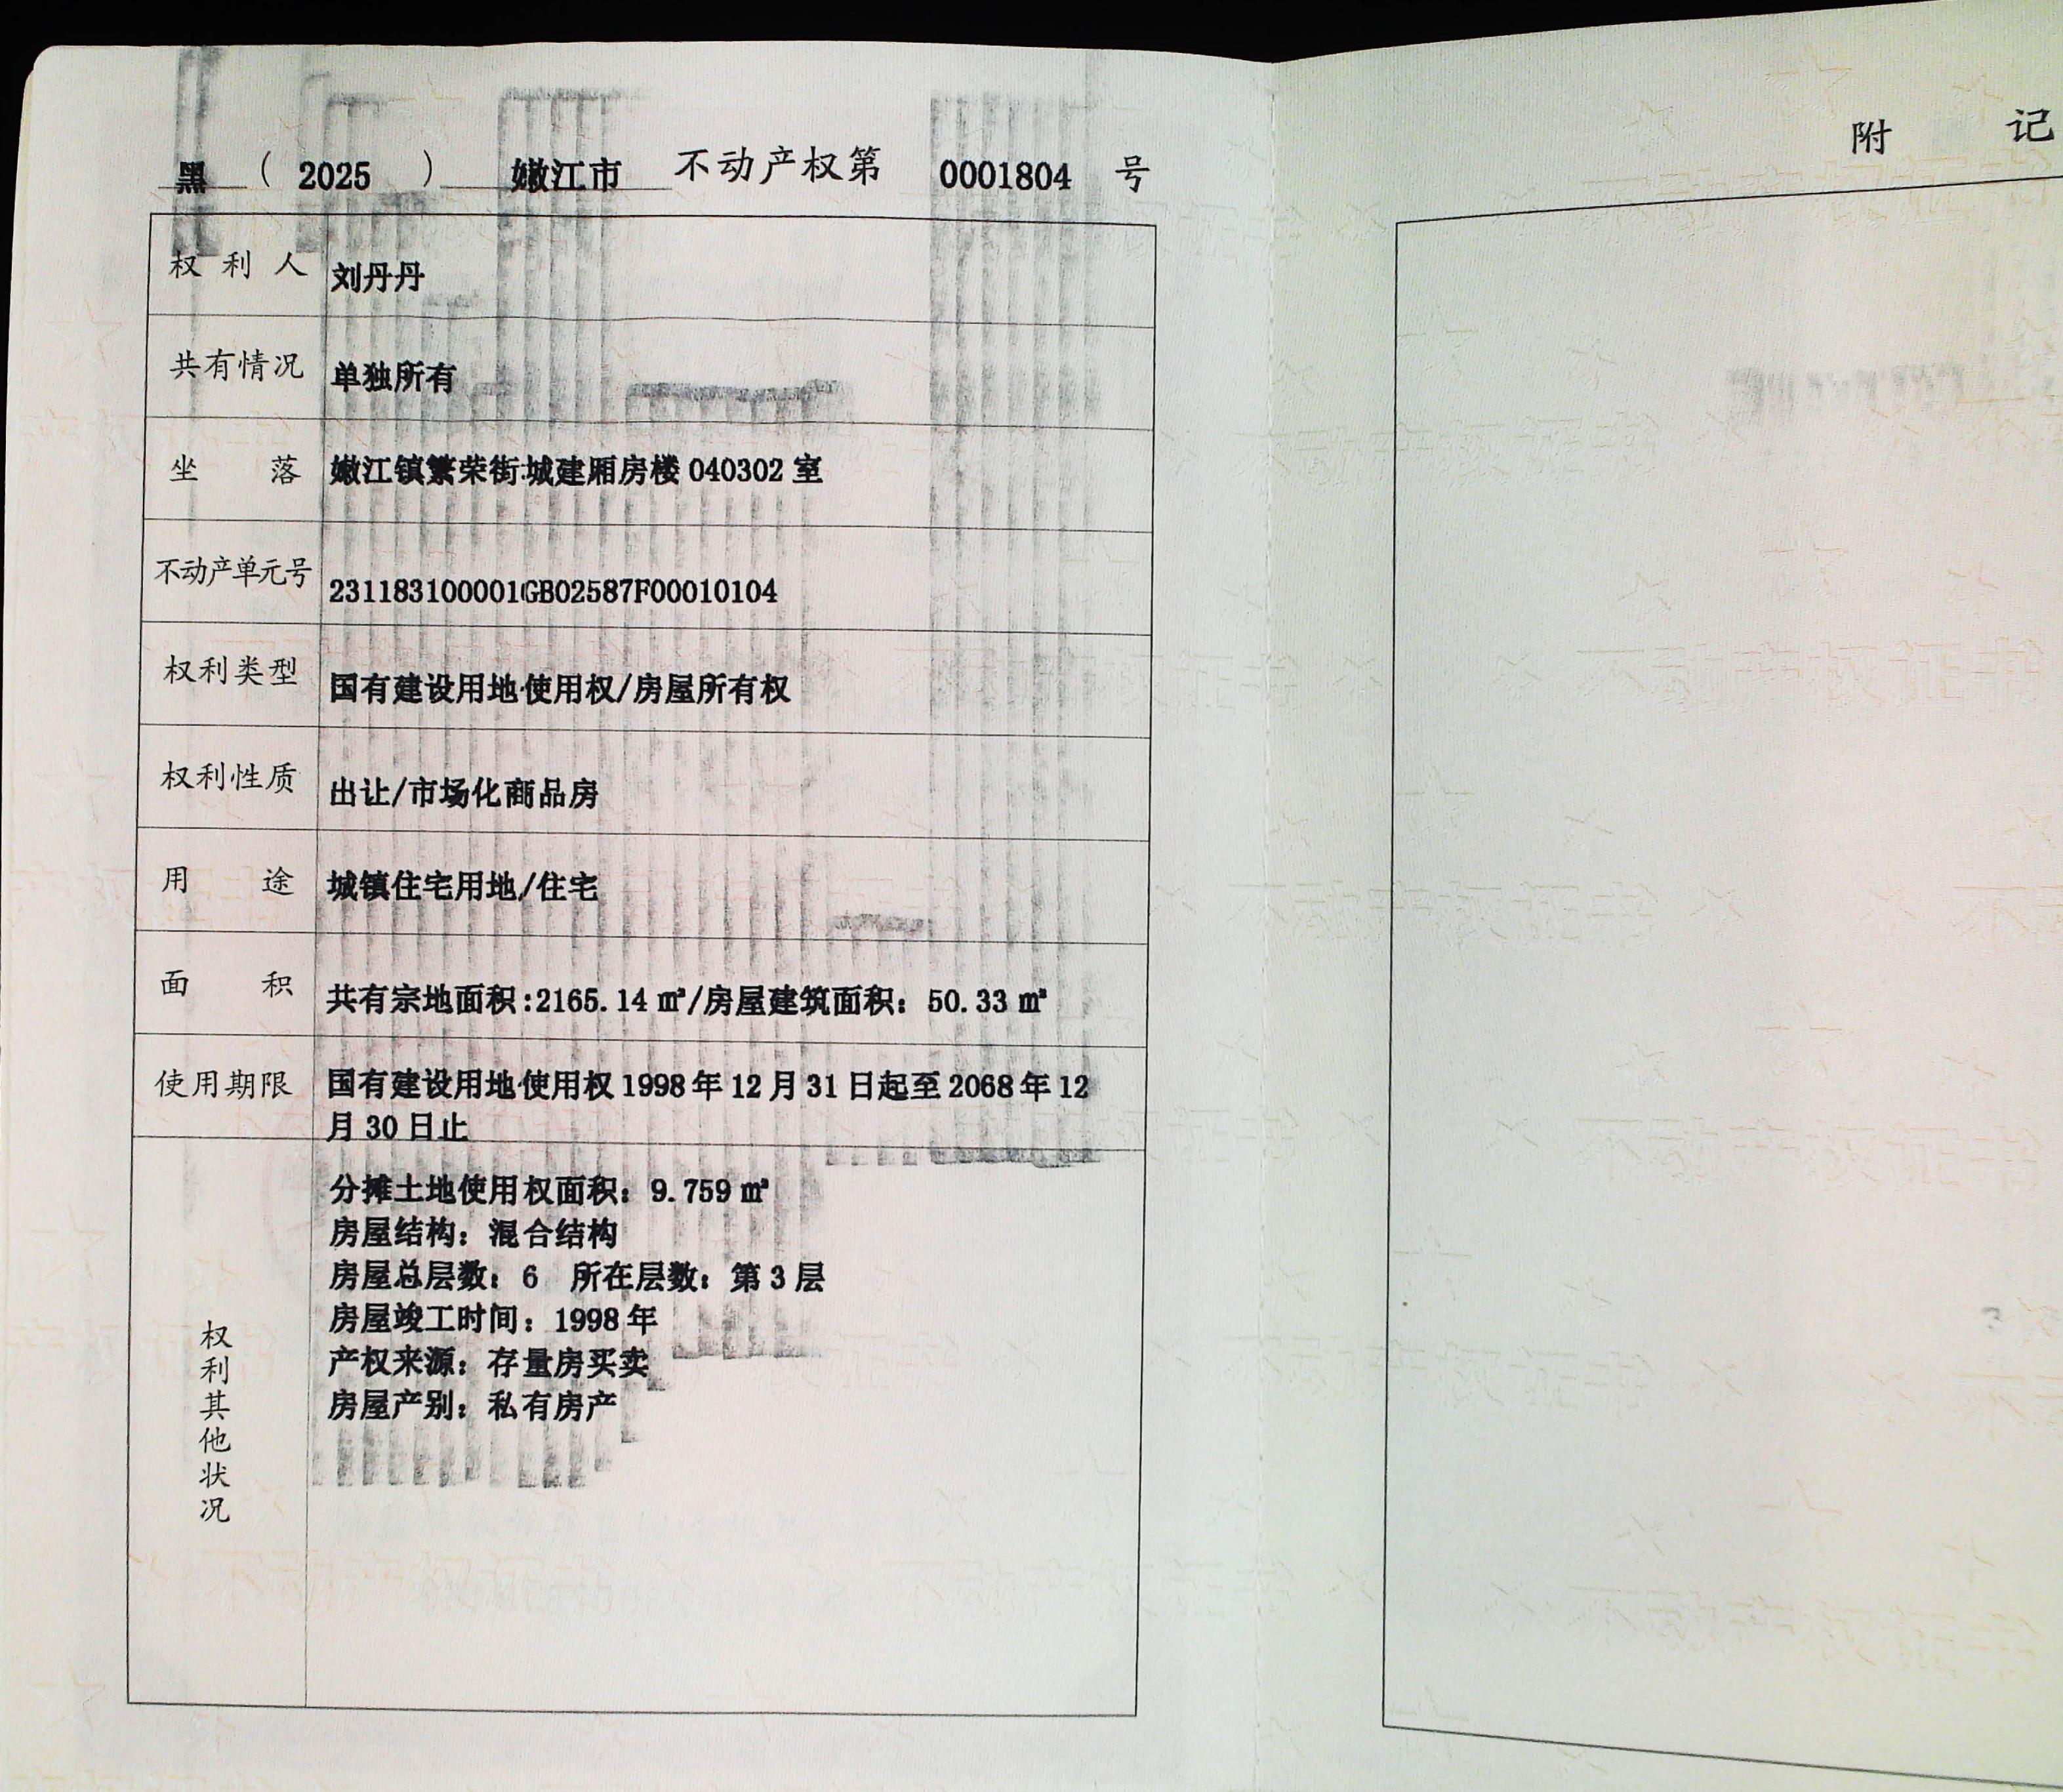 黑 ( 2025 ) 嫩江市 不动产权第 0001804 号
权利人 刘丹丹
共有情况 单独所有
坐落 嫩江镇繁荣街城建厢房楼 040302 室
不动产单元号 231183100001GB02587F00010104
权利类型 国有建设用地使用权/房屋所有权
权利性质 出让/市场化商品房
用途 城镇住宅用地/住宅
面积 共有宗地面积:2165.14 ㎡/房屋建筑面积：50.33 ㎡
使用期限 国有建设用地使用权 1998 年 12 月 31 日起至 2068 年 12
月 30 日止
权利其他状况
分摊土地使用权面积：9.759 ㎡
房屋结构：混合结构
房屋总层数：6 所在层数：第 3 层
房屋竣工时间：1998 年
产权来源：存量房买卖
房屋产别：私有房产
附 记